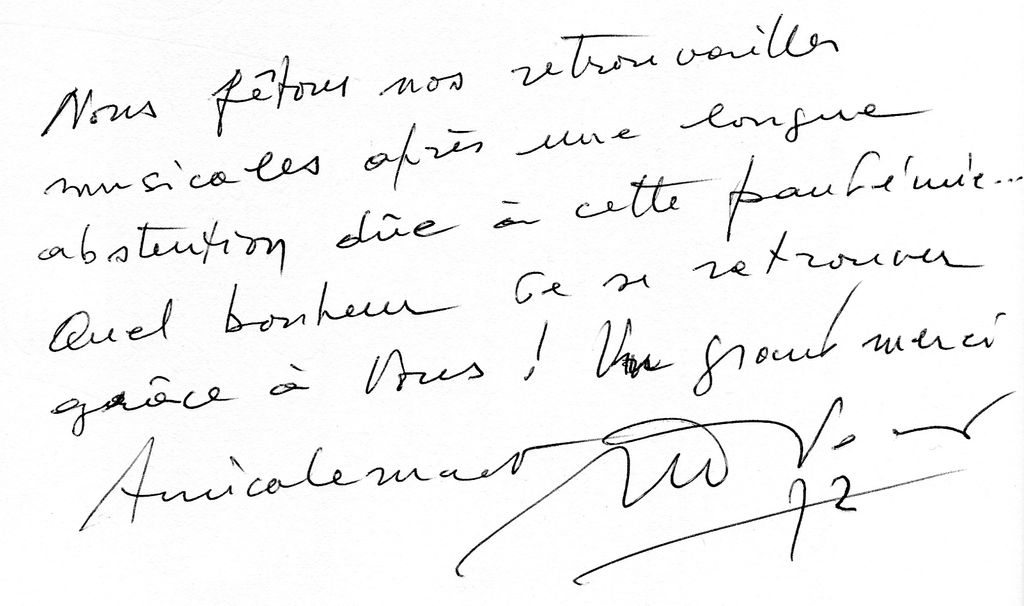 Nous fêtons nos retrouvailles
musicales après une longue
abstention dûe à cette pandémie...
Quel bonheur de se retrouver
grâce à Vous ! Un grand merci
Amicalement